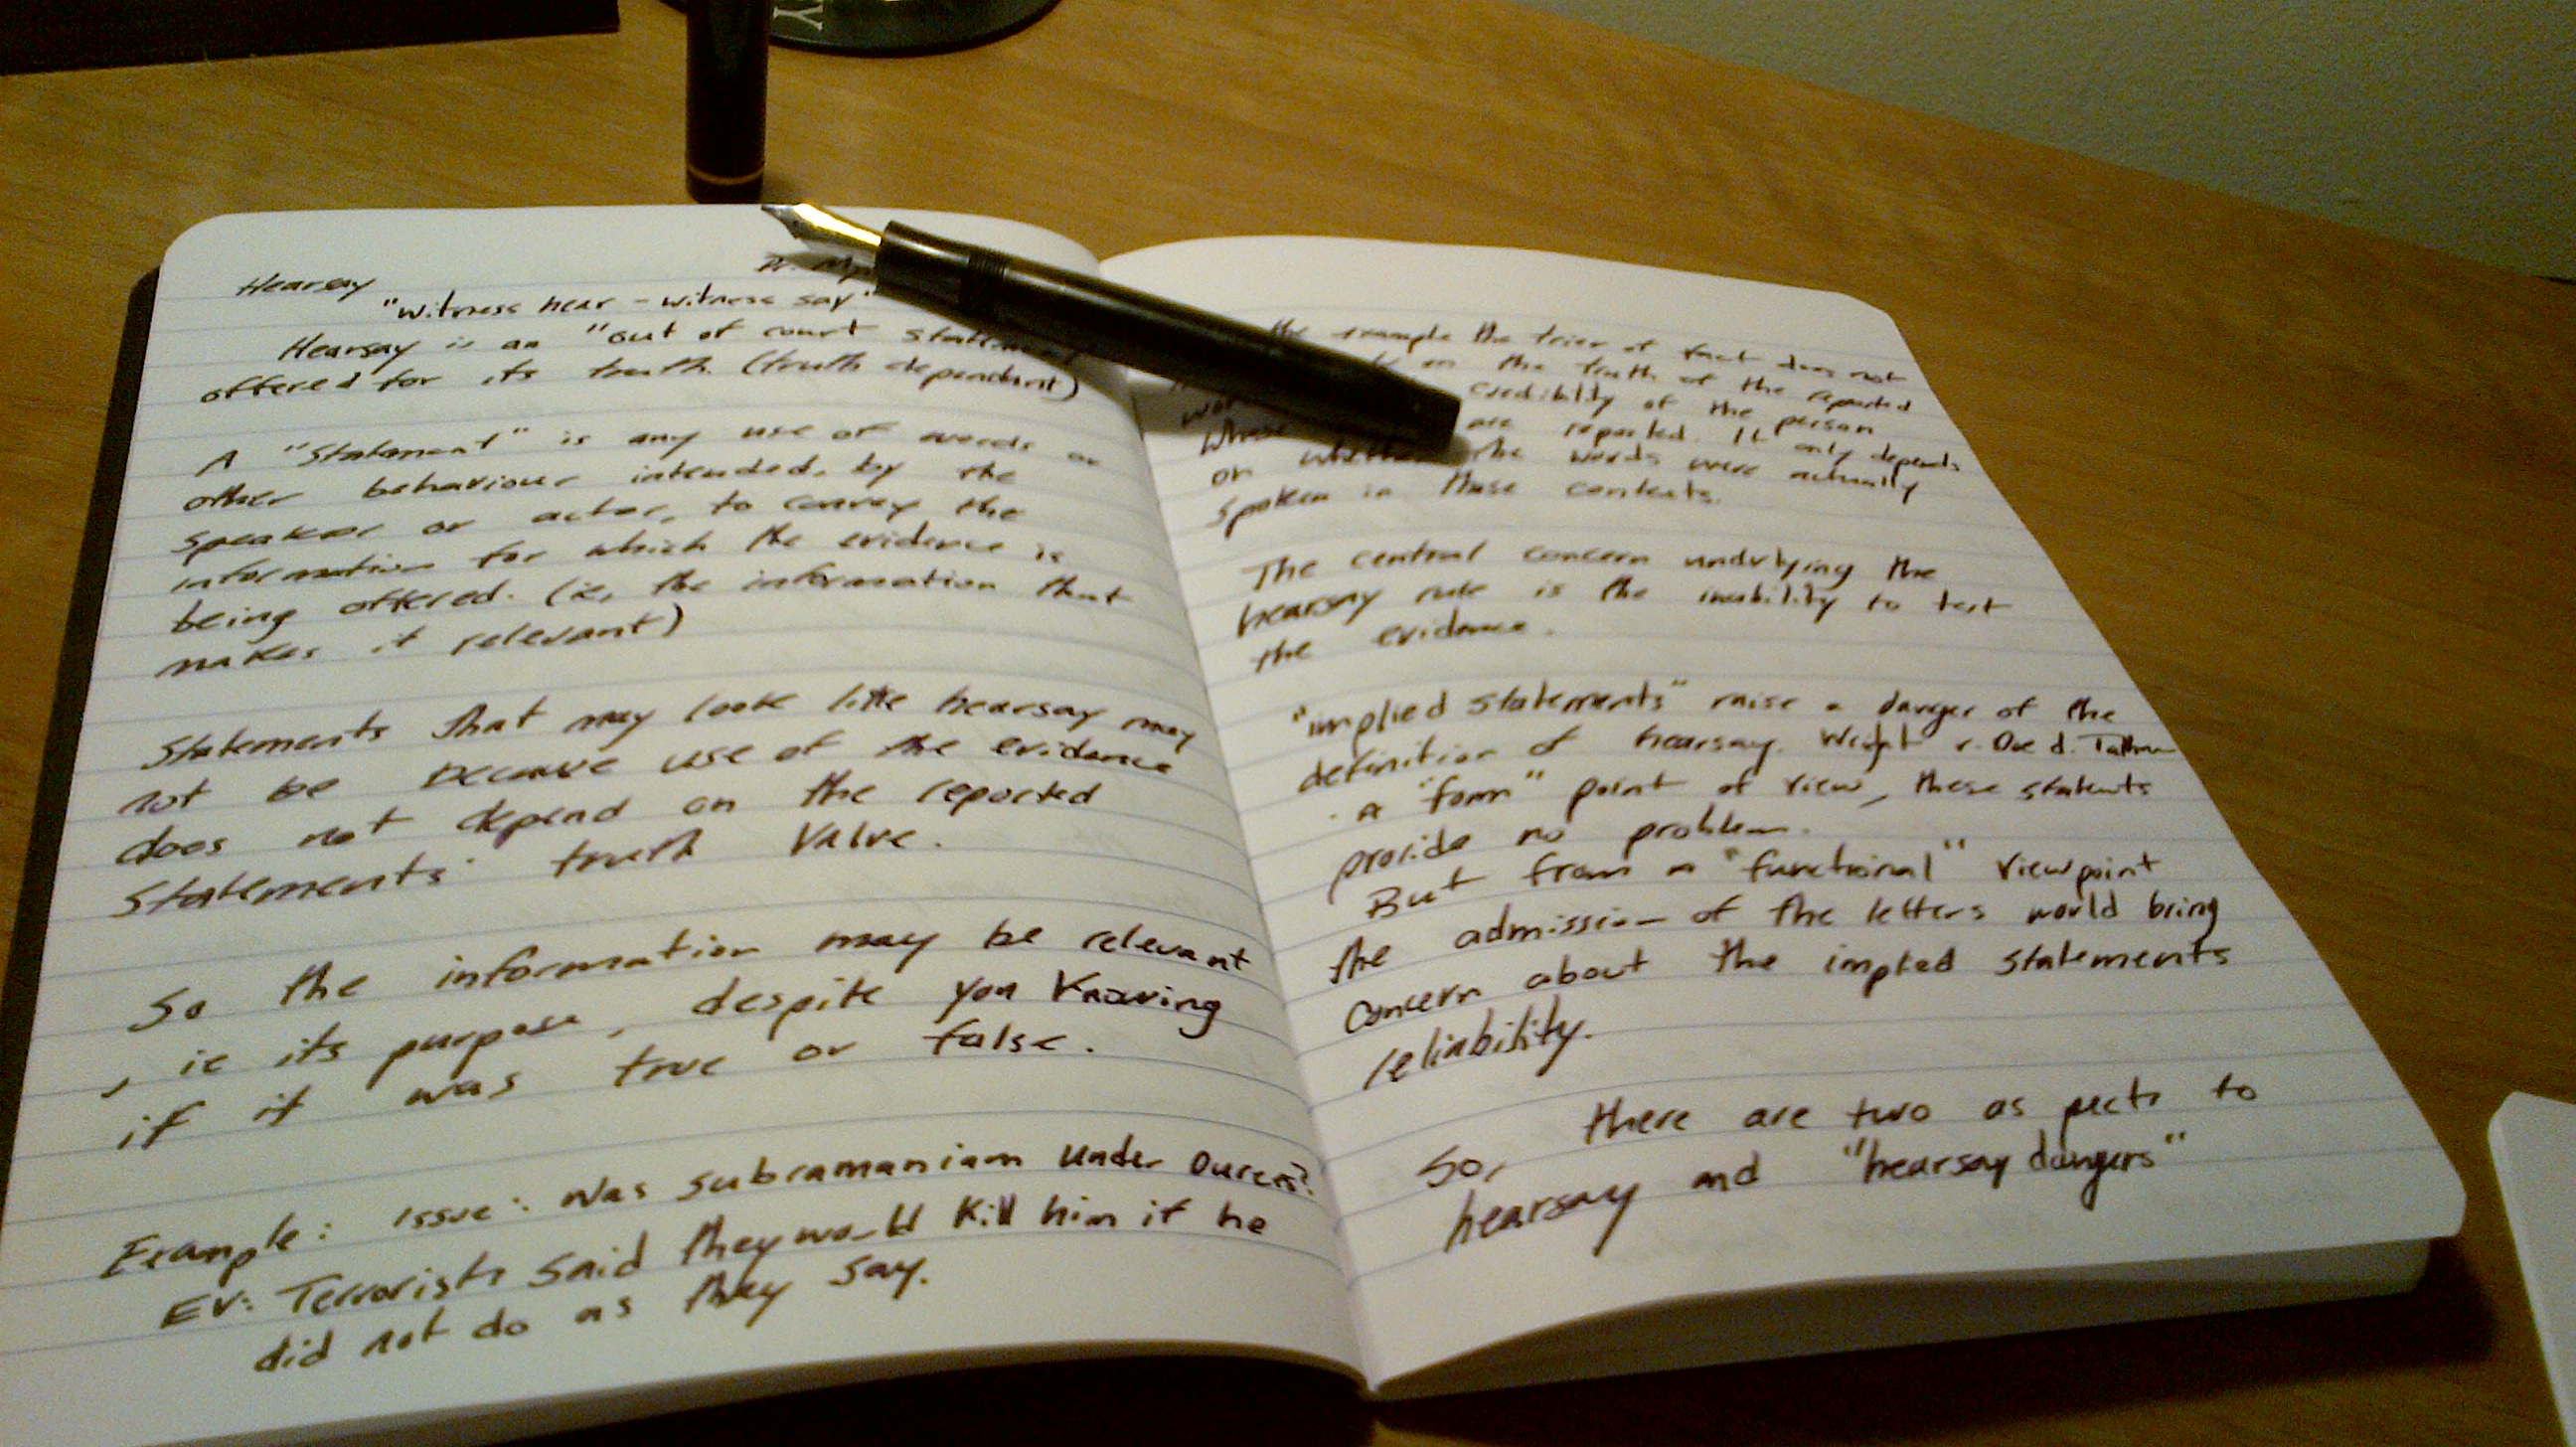 Y
Hearsay
"witness hear - witness say"
Hearsay is an "out of court
offered for its truth. (truth dependant)
A "Statement" is any use of words or
other behaviour intended, by the
speaker or actor, to convey the
information for which the evidence is
being offered. (ie, the information that
makes it relevant)
Statements that may look like hearsay may
not be because use of the evidence
does not depend on the reported
Statements' truth Value.
So the information may be relevant
, ie its purpose, despite you Knowing
if it was true or false.
Example: Issue: Was Subramaniam under Duress?
EV: Terrorists Said they would Kill him if he
did not do as they say.
the example the trier of fact does not
on the truth of the reported
credibility of the person
Whose are reported. It only depends
on whether the words were actually
spoken in those contexts.
The central concern underlying the
hearsay rule is the inability to test
the evidence.
"implied Statements" raise a danger of the
definition of hearsay. Wright v. Doe d. Tatham
- A "form" point of view, these statents
provide no problem.
But from a "functional" viewpoint
the admission of the letters would bring
concern about the implied statements
reliability.
So, there are two aspects to
hearsay and "hearsay dangers"